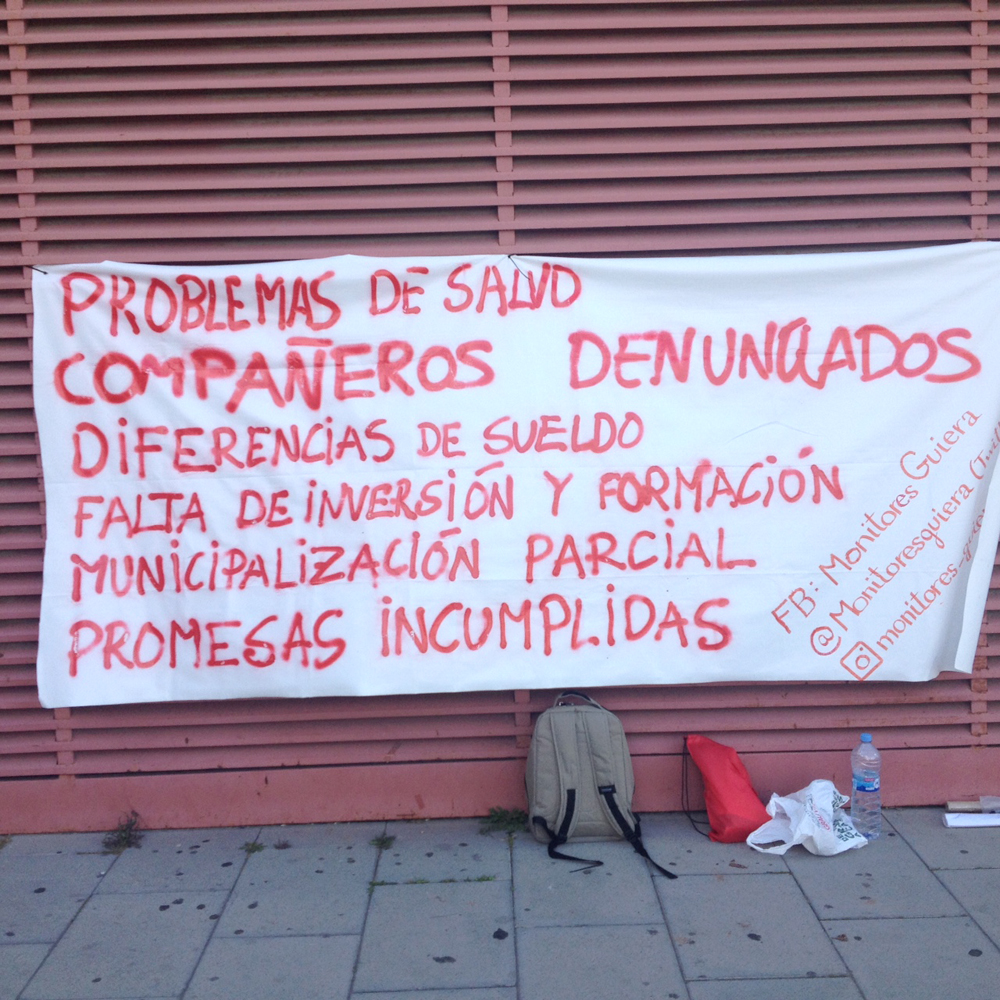 PROBLEMAS DE SALUD
COMPAÑEROS DENUNCIADOS
DIFERENCIAS DE SUELDO
FALTA DE INVERSIÓN Y FORMACIÓN
MUNICIPALIZACIÓN PARCIAL
PROMESAS INCUMPLIDAS
FB: Monitores Guiera
@Monitoresguiera
monitores-